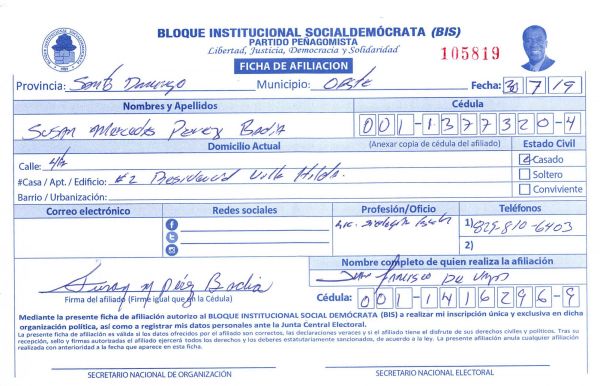 BLOQUE INSTITUCIONAL SOCIALDEMÓCRATA (BIS)
PARTIDO PEÑAGOMISTA
Libertad, Justicia, Democracia y Solidaridad
FICHA DE AFILIACION
105819
Provincia: Santo Domingo Municipio: Oeste Fecha: 30/7/19
Nombres y Apellidos Cédula
Susan Mercedes Perez Badia 001-1377320-4
Domicilio Actual (Anexar copia de cédula del afiliado) Estado Civil
Calle: 4/2 Casado
#Casa / Apt. / Edificio: #2 Residencial Villa Hilda. Soltero
Barrio / Urbanización: Conviviente
Correo electrónico Redes sociales Profesión/Oficio Teléfonos
Lic. 1) 829-810-6403
2)
Nombre completo de quien realiza la afiliación
Juan Francisco De
Susan M Pérez Badia
Firma del afiliado (Firme igual que en la Cédula) Cédula: 001-1416296-9
Mediante la presente ficha de afiliación autorizo al BLOQUE INSTITUCIONAL SOCIAL DEMÓCRATA (BIS) a realizar mi inscripción única y exclusiva en dicha
organización política, así como a registrar mis datos personales ante la Junta Central Electoral.
La presente ficha de afiliación es válida si los datos ofrecidos por el afiliado son correctos, las declaraciones veraces y si el afiliado tiene el disfrute de sus derechos civiles y políticos. Tras su
recepción, sello y firmas autorizadas el afiliado ejercerá todos los derechos y los deberes estatutariamente sancionados, de acuerdo a la ley. La presente afiliación anula cualquier afiliación
realizada con anterioridad a la fecha que aparece en esta ficha.
SECRETARIO NACIONAL DE ORGANIZACIÓN SECRETARIO NACIONAL ELECTORAL